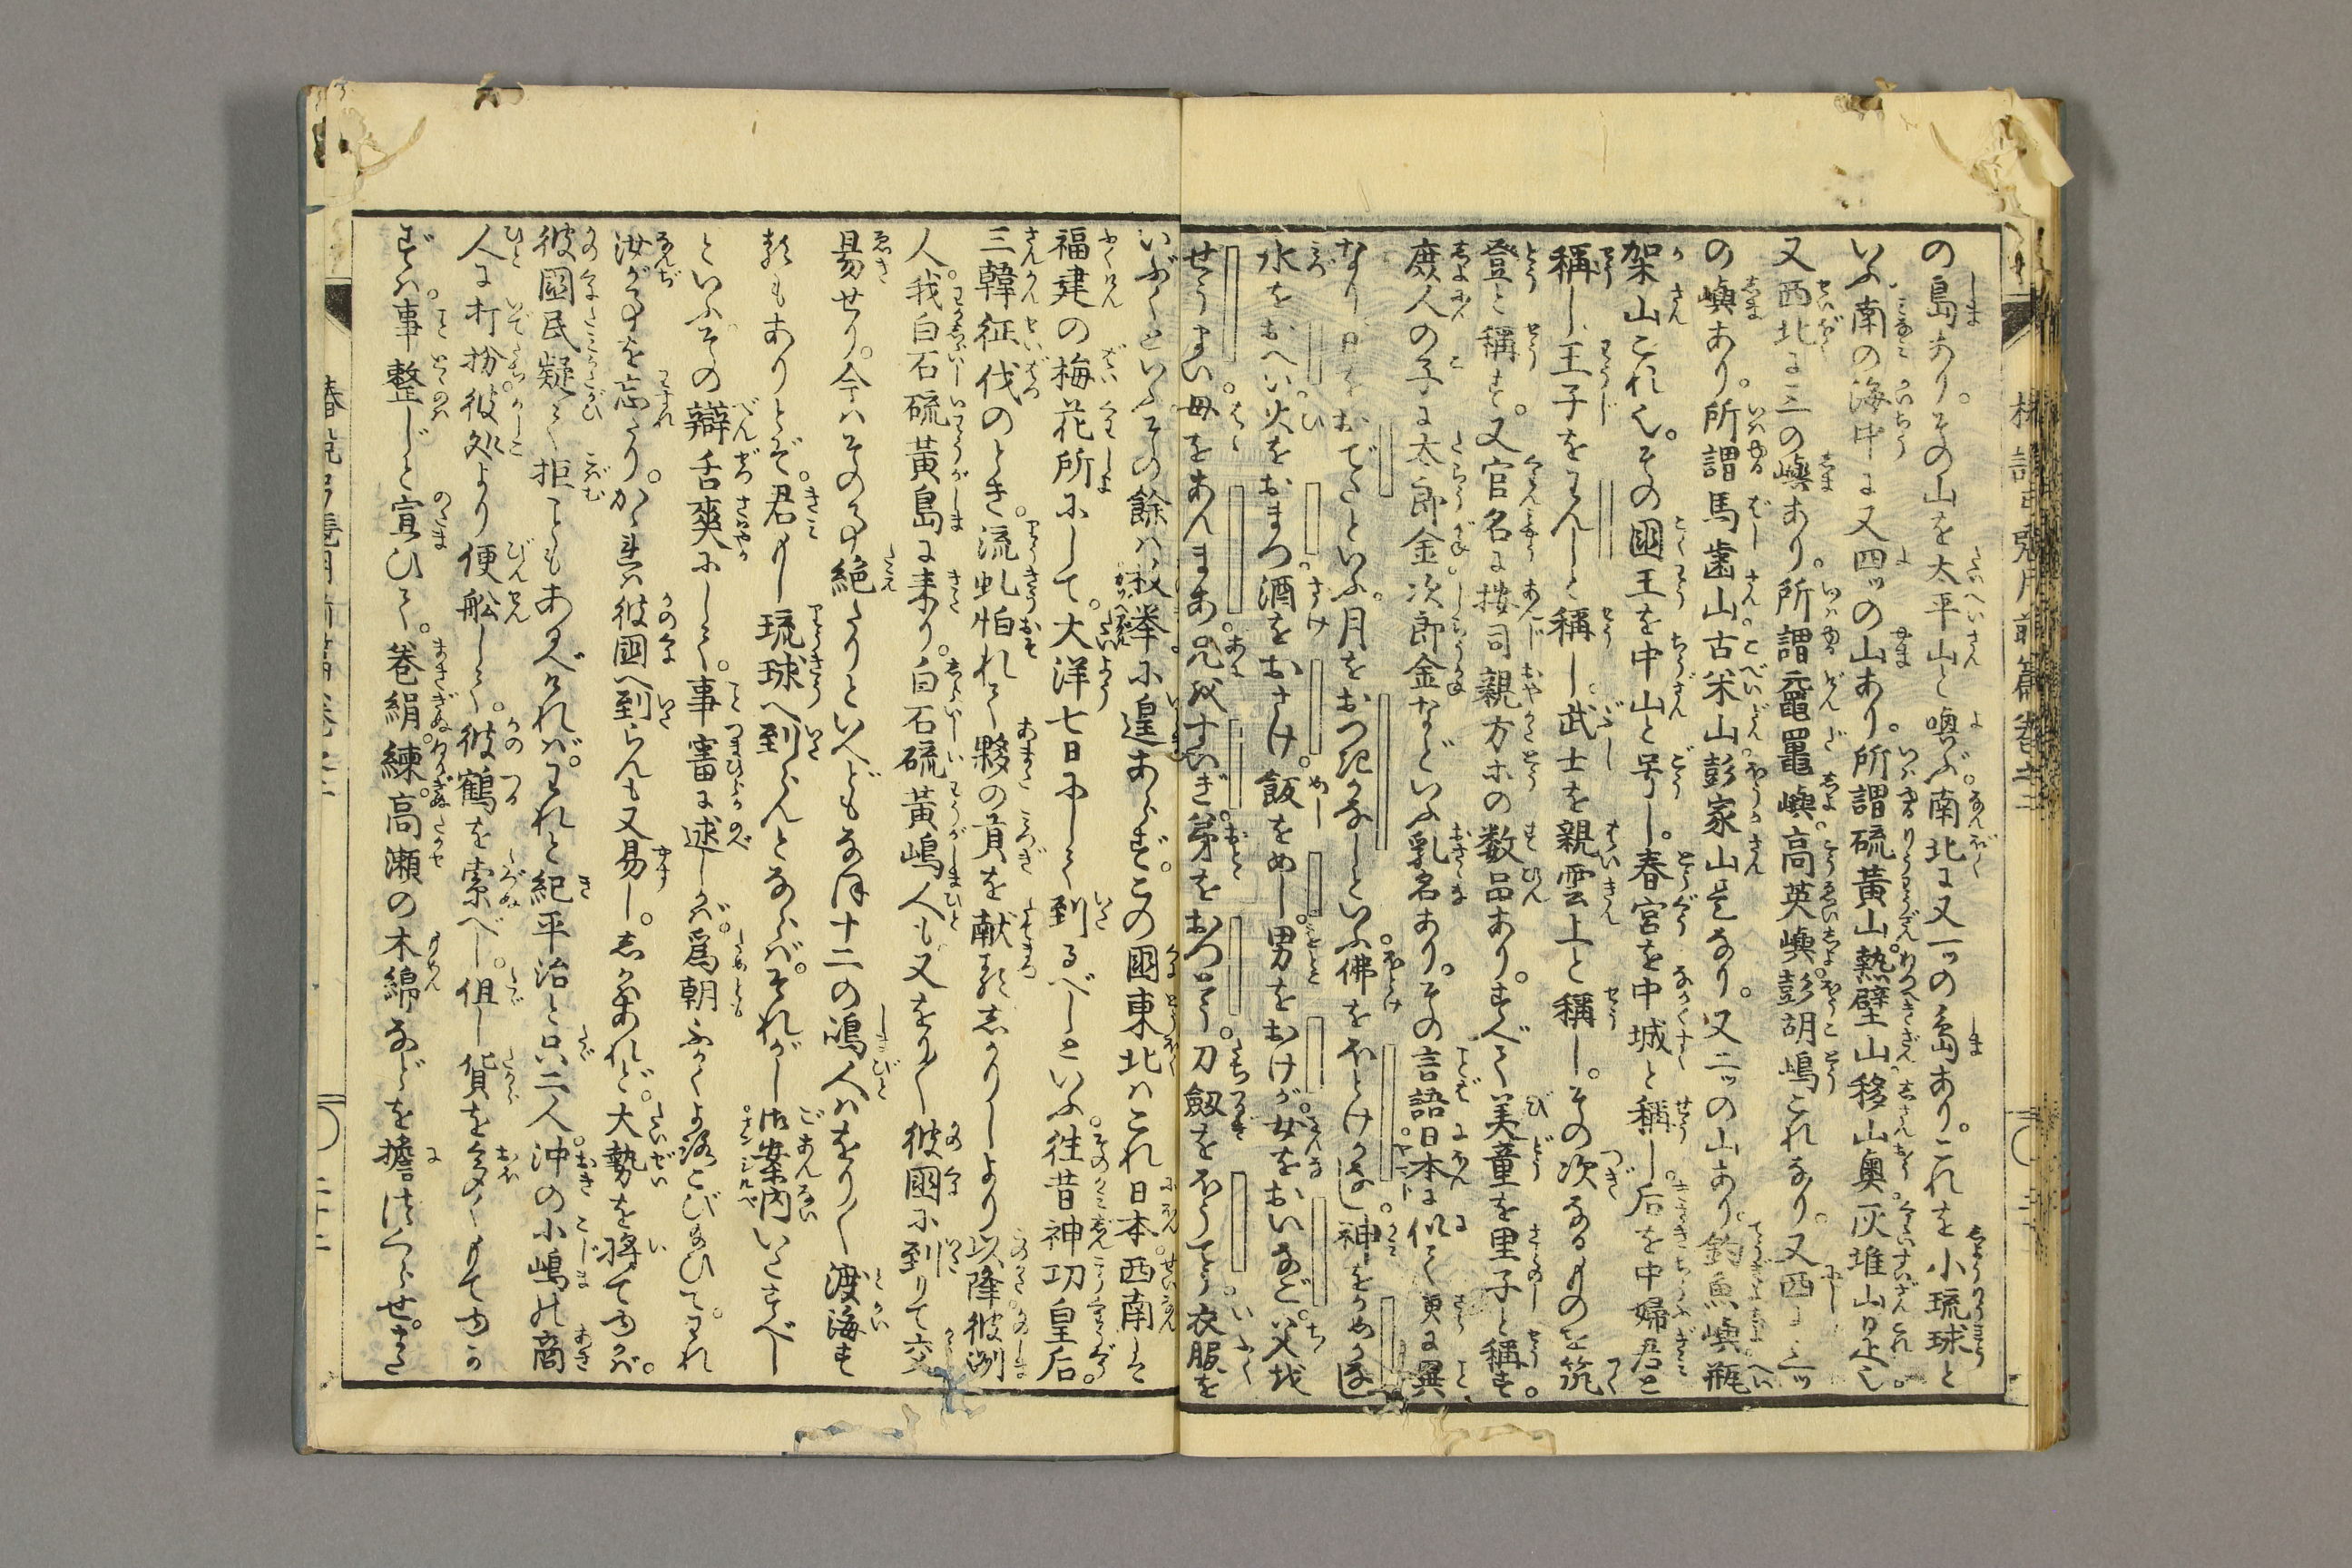 の島あり。その山を太平山と喚ぶ。南北に又一ッの島あり。これを小琉球と
いふ南の海中に又四ッの山あり。所謂硫黄山。熱壁山移山奥灰堆山是也
又西北に三の嶼あり。所謂黿鼊嶼。高英嶼。彭胡嶋これなり。又西に三ッ
の嶼あり。所謂馬歯山。古米山。彭家山是なり。又二ッの山あり。釣魚嶼。瓶
架山これ也。その國王を中山と号し。春宮を中城と稱し。后を中婦君と
稱し王子をわんしと稱し。武士を親雲上と稱し。その次なるものを筑
登と稱す。又官名に按司親方等の数品あり。すべて美童を里子と稱す。
庶人の子に太郎金次郎金などいふ乳名あり。その言語日本に似て更に異
なり日をおでさといふ。月をおつきかなしといふ佛をホとけかなし。神をかめかなし
水をおへい。火をおまつ酒をおさけ。飯をめし。男をおけが。女をおいなご。父を
せうまい。母をあんまあ。兄をすいぎ。弟をおつとう。刀劔をほうてう。衣服を
いぶくといふ。その餘は枚挙に遑あらず。この國東北はこれ日本西南は
福建の梅花所にして。大洋七日にして到るべしといふ。往昔神功皇后。
三韓征伐のとき。流虬怕れて夥の貢を献りしより以降彼洲
人。我白石硫黄島に来り。白石硫黄嶋人も又をり〱彼國に到りて交
易せり。今はその事絶たりといへどもなほ十二の嶋人はをり〱渡海す
るもありとぞ。君もし琉球へ到らんとならば。それがし御案内いたすべし
といふ。その辯舌爽にして。事審に述しが。爲朝ふかくよろこび給ひて。われ
汝が事を忘たり。かゝれば彼國へ到らんも又易し。しかはあれど。大勢を将てゆかば。
彼國民疑て拒ともあるべければ。われと紀平治と只二人。沖の小嶋の商
人に打扮彼処より便船して。彼鶴を索べし。但し貨を多くもてゆか
ずは。事整じと宣ひて。巻絹。練。高瀬の木綿などを擔はくらせ。さき